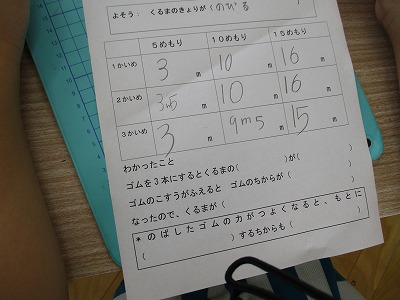 よそう: くるまのきょりが(のびる)
5めもり 10めもり 15めもり
1かいめ 3m 10m 16m
2かいめ 3m5m 10m 16m
3かいめ 3m 9m5m 15m
わかったこと
ゴムを3本にするとくるまの( )が( )
ゴムのこすうがふえると ゴムのちからが( )
なったので、くるまが( )
*のばしたゴムの力がつよくなると、もとに
( )するちからも( )